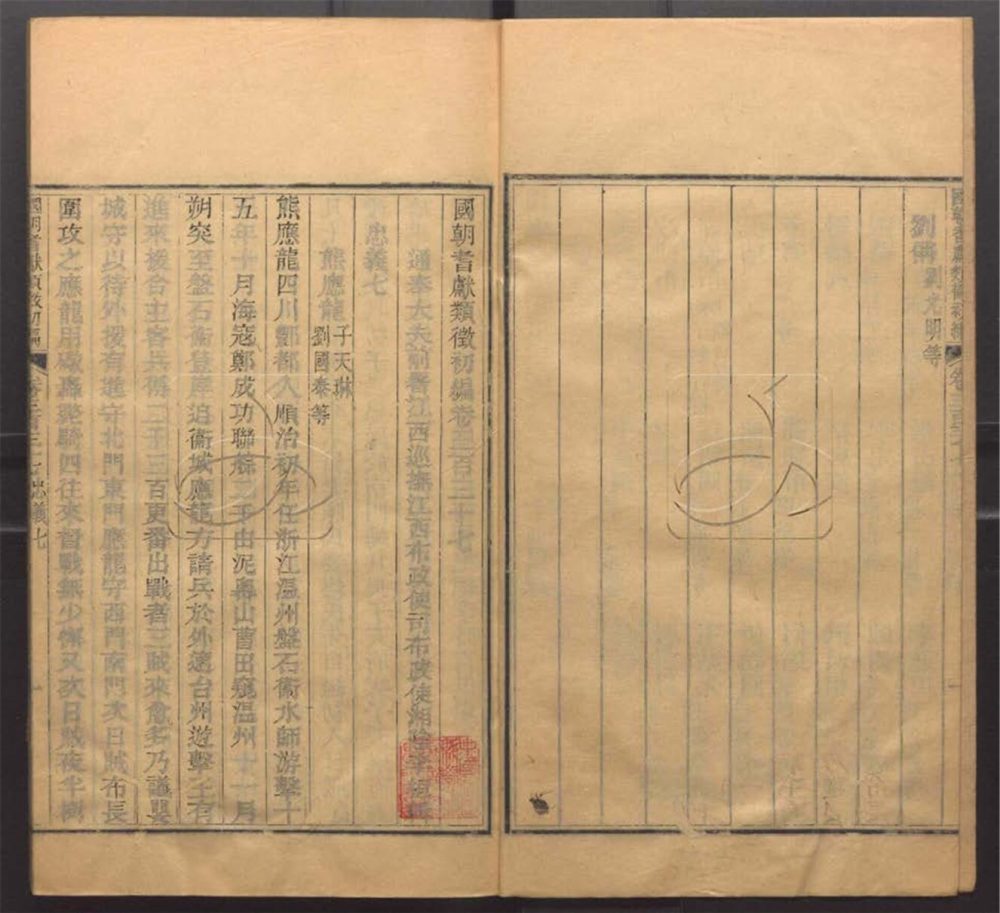 劉佛 劉光明等
國朝耆獻類徵初編卷三百三十七
通奉大夫前署江西巡撫江西布政使司布政使湘陰李
忠義七
熊應龍 子天琳 劉國泰等
熊應龍四川酆都人順治初年任浙江溫州盤石衞水師游擊十
五年十月海寇鄭成功聯䑸二千由泥山曹田窺溫州十一月
朔突至盤石衞登岸追衞城應龍方請兵於外適台州遊擊王有
進來援合主客兵得二千三百更番出戰者三賊來愈多乃議嬰
城守以待外援有進守北門東門應龍守西門南門次日賊布長
圍攻之應龍用四往來督戰無少懈又次日賊夜半樹
國朝耆獻類徵初編 卷三百三十七 忠義七 一